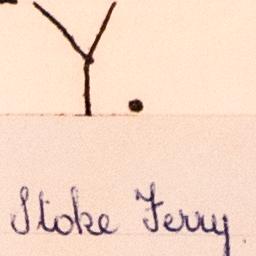 Y.
Stoke Ferry.